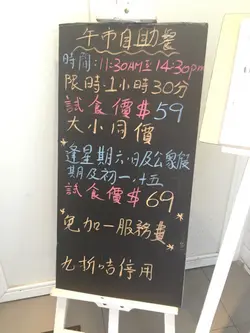 午市自助餐
時間:11:30AM至14:30pm
限時1小時30分
試食價$59
大小同價
*逢星期六.日及公眾假
期及初一.十五
試食價$69
*免加一服務費
九折咭停用